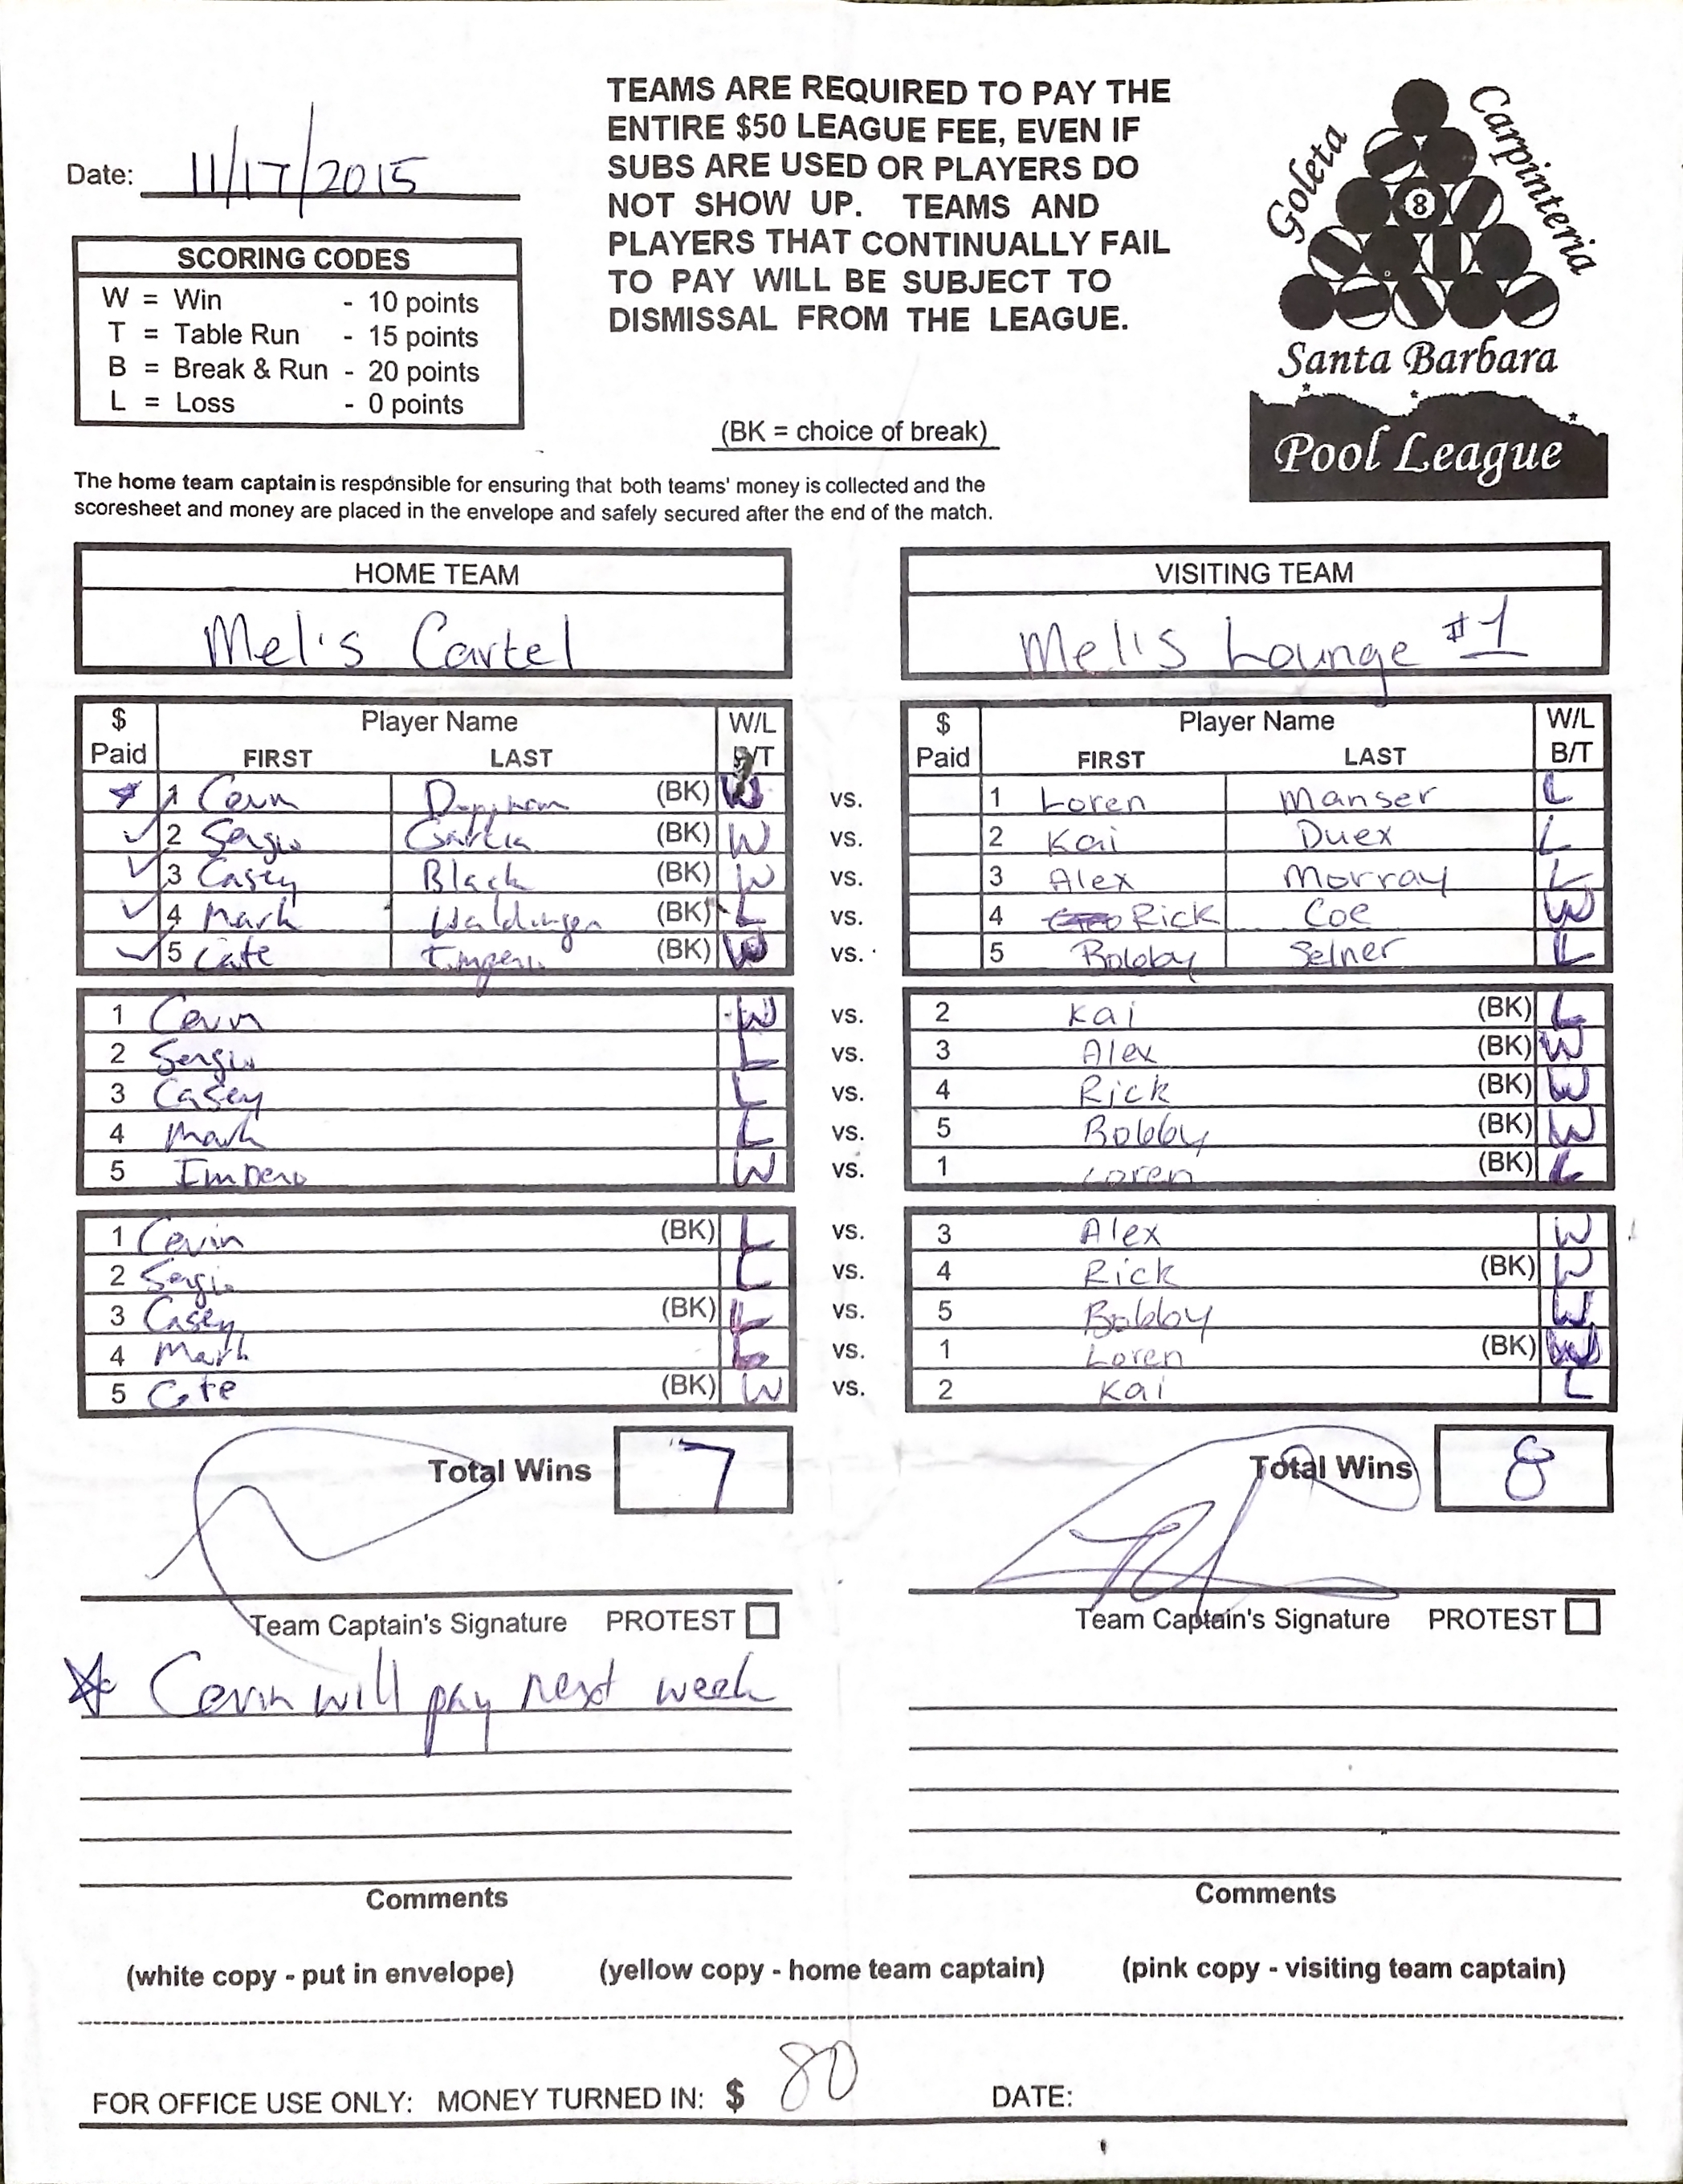 TEAMS ARE REQUIRED TO PAY THE
ENTIRE $50 LEAGUE FEE, EVEN IF
SUBS ARE USED OR PLAYERS DO
NOT SHOW UP. TEAMS AND
PLAYERS THAT CONTINUALLY FAIL
TO PAY WILL BE SUBJECT TO
DISMISSAL FROM THE LEAGUE.
Date: 11/17/2015
SCORING CODES
W = Win - 10 points
T = Table Run - 15 points
B = Break & Run - 20 points
L = Loss - 0 points
(BK = choice of break)
Goleta
Carpinteria
8
Santa Barbara
Pool League
The home team captain is responsible for ensuring that both teams' money is collected and the
scoresheet and money are placed in the envelope and safely secured after the end of the match.
HOME TEAM VISITING TEAM
Mel's Cartel Mel's Lounge #1
$ Player Name W/L $ Player Name W/L
Paid FIRST LAST B/T Paid FIRST LAST B/T
1 Cevin (BK) W vs. 1 Loren Manser L
2 Sergio Garcia (BK) W vs. 2 Kai Duex L
3 Casey Black (BK) W vs. 3 Alex Morray L
4 Mark (BK) L vs. 4 Rick Coe W
5 Cate Impero (BK) W vs. 5 Bobby Selner L
1 Cevin W vs. 2 Kai (BK) L
2 Sergio L vs. 3 Alex (BK) W
3 Casey L vs. 4 Rick (BK) W
4 Mark L vs. 5 Bobby (BK) W
5 Impero W vs. 1 Loren (BK) L
1 Cevin (BK) L vs. 3 Alex W
2 Sergio L vs. 4 Rick (BK) W
3 Casey (BK) L vs. 5 Bobby W
4 Mark L vs. 1 Loren (BK) W
5 Cate (BK) W vs. 2 Kai L
Total Wins 7 Total Wins 8
Team Captain's Signature PROTEST Team Captain's Signature PROTEST
Cevin will pay next week
Comments Comments
(white copy - put in envelope) (yellow copy - home team captain) (pink copy - visiting team captain)
FOR OFFICE USE ONLY: MONEY TURNED IN: $ 80 DATE: